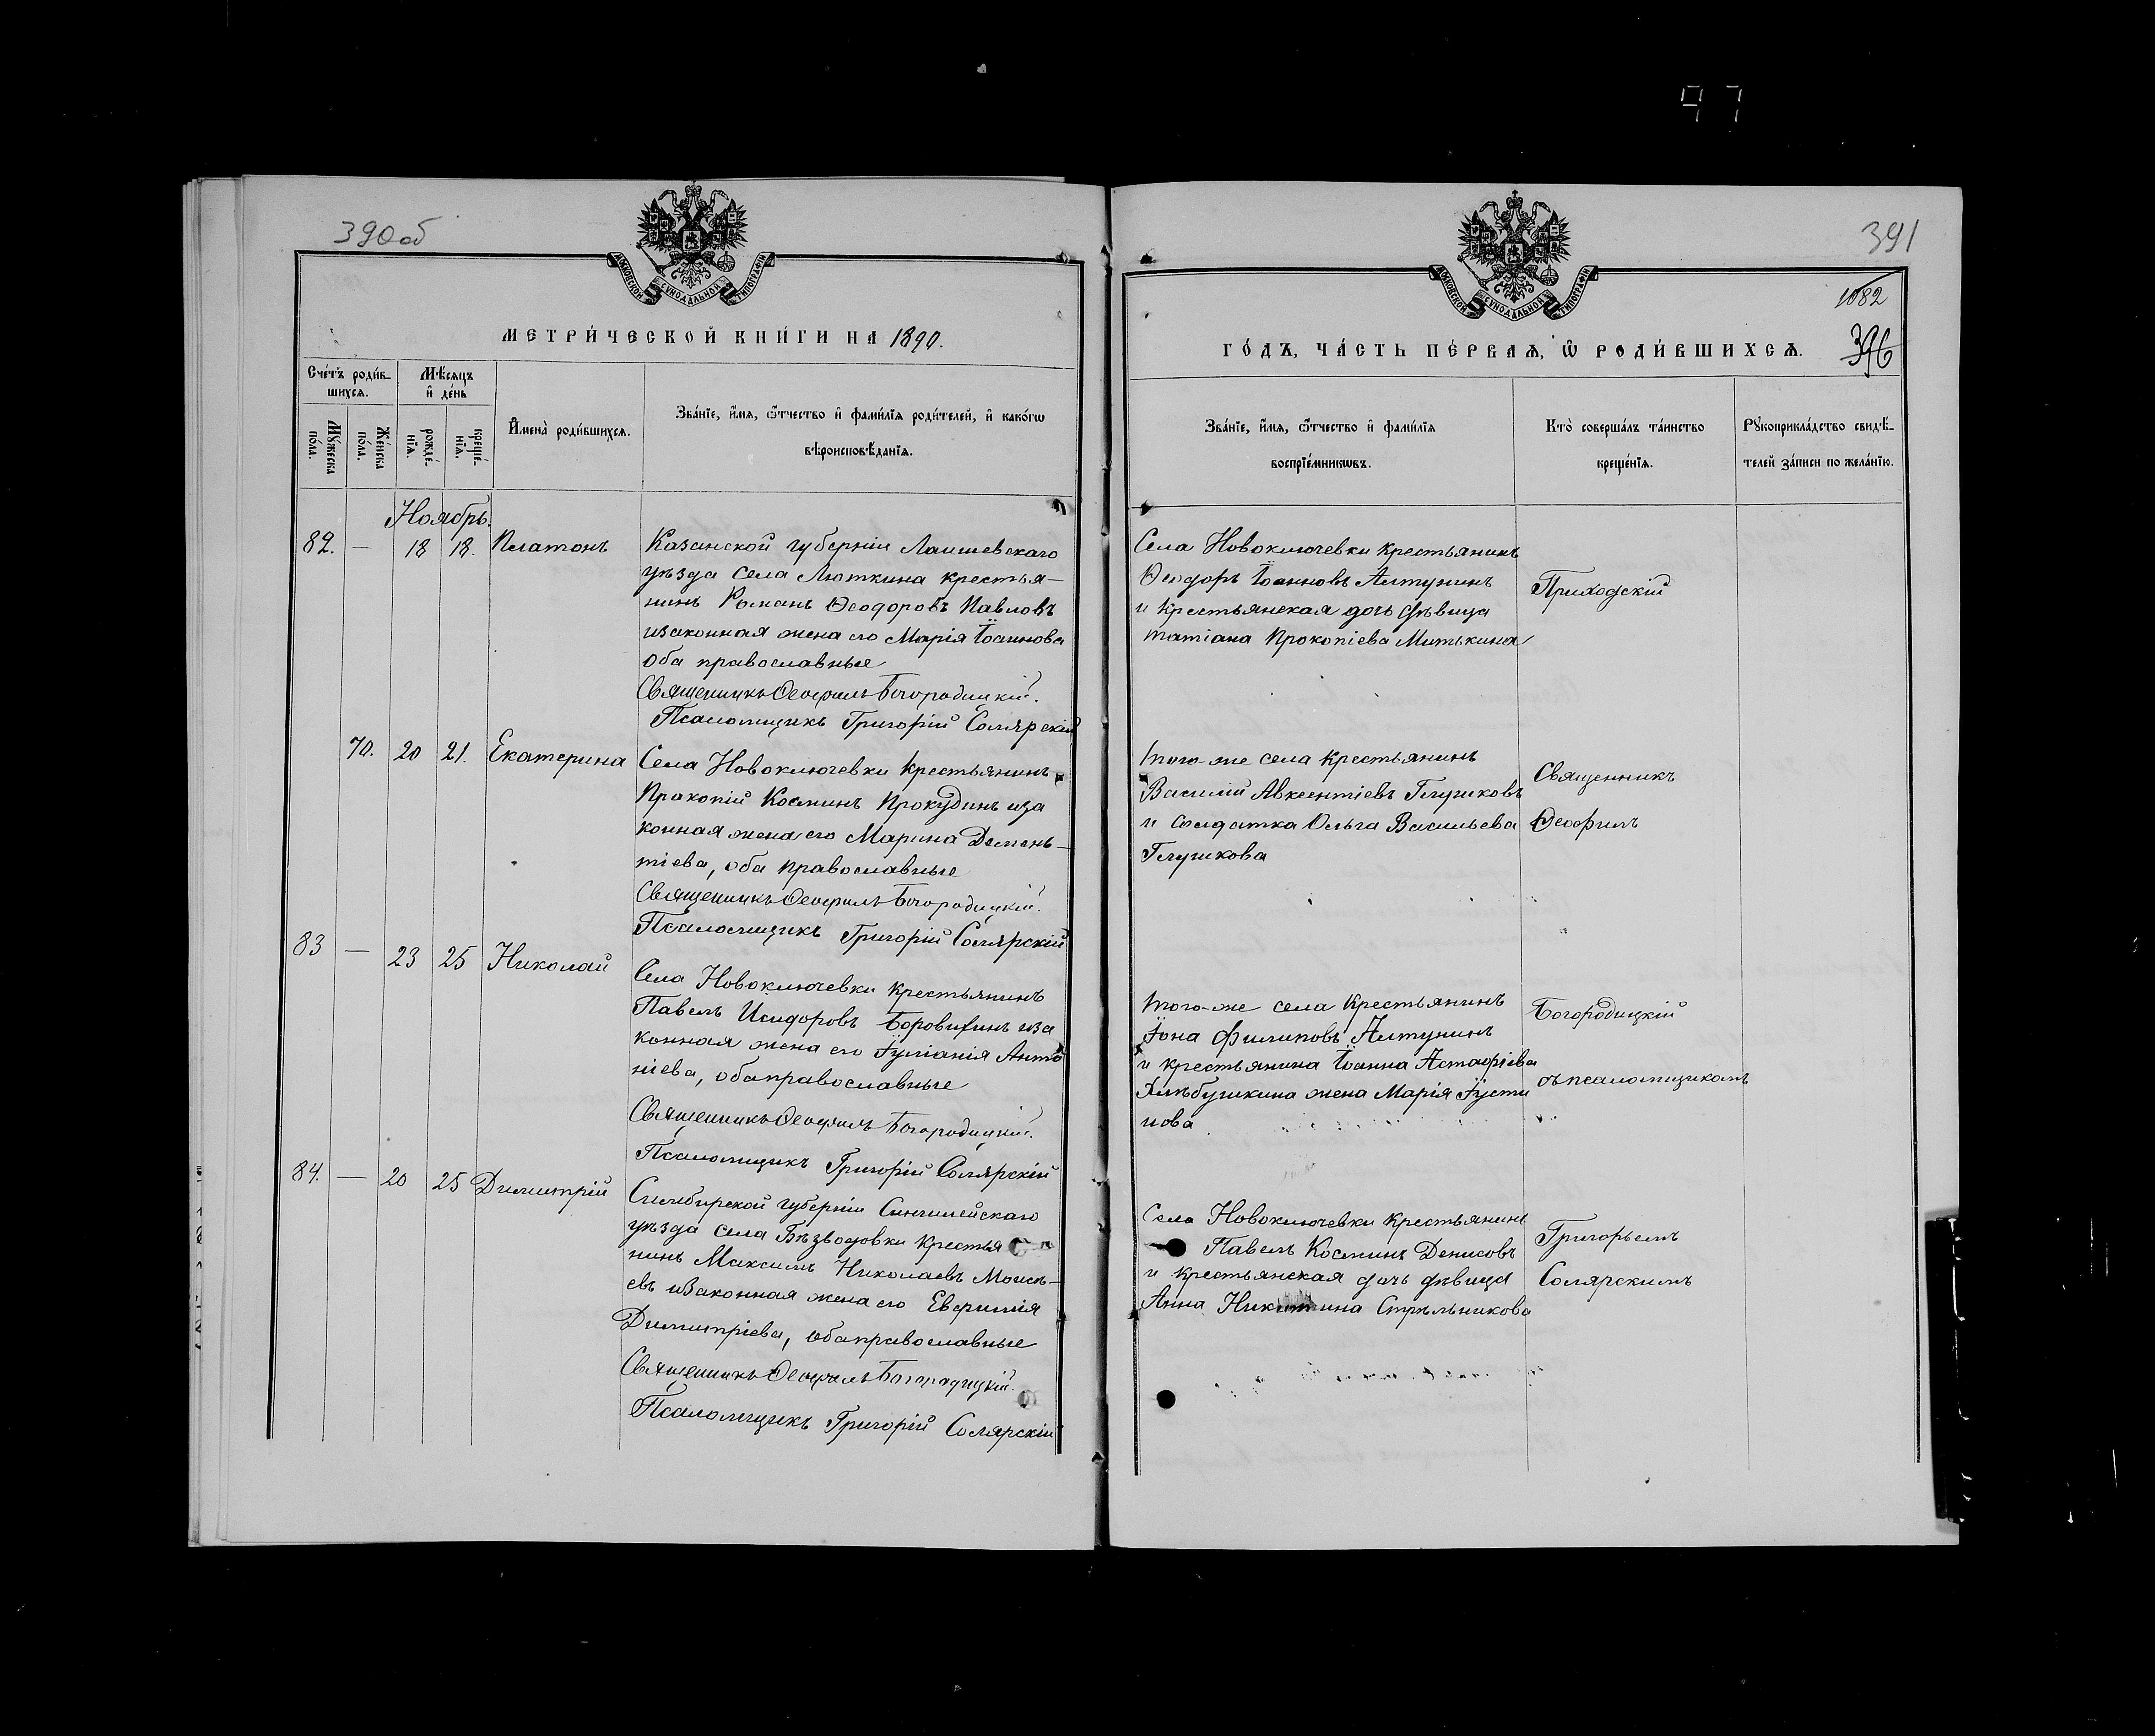 97
390 об
МОСКОВСКОЙ СУНОДАЛЬНОЙ ТИПОГРАФІИ
МЕТРИ́ЧЕСКОЙ КНИ́ГИ НА 1890.
Сче́тъ роди́в-
шихся.
Мѣ́сяцъ
и҆ де́нь
Мꙋ́жеска
по́ла.
Же́нска
по́ла.
рожде́-
нїѧ.
креще́-
нїѧ.
И҆мена̀ роди́вшихсѧ.
Зва́нїе, и҆́мѧ, ѻ҆́тчество и҆ фами́лїѧ роди́телей, и҆ како́гѡ
вѣроисповѣ́данїѧ.
Ноябрь.
82. — 18 18. Платонъ
Казанской губерніи Лаишевскаго
уѣзда села Люткина крестья-
нинъ Романъ Ѳеодоровъ Павловъ
изаконная жена его Марія Іоаннова
оба православные
Священникъ Ѳеофилъ Богородицкій.
Псаломщикъ Григорій Солярскій
70. 20 21. Екатерина
Села Новоключевки крестьянинъ
Прокопій Косминъ Прокудинъ иза
конная жена его Марина Демень-
тіева, оба православные
Священникъ Ѳеофилъ Богородицкій.
Псаломщикъ Григорій Солярскій
83 — 23 25 Николай
Села Новоключевки крестьянинъ
Павелъ Исидоровъ иза
конная жена его Іуліанія Анто
ніева, обаправославные
Священникъ Ѳеофилъ Богородицкій.
Псаломщикъ Григорій Солярскій
84. — 20 25 Димитрій
Симбирской губерніи Сингилейскаго
уѣзда села Бѣзводовки крестья
нинъ Максимъ Николаевъ Моисѣ-
евъ изаконная жена его Евфимія
Димитріева, обаправославные
Священникъ Ѳеофилъ Богородицкій.
Псаломщикъ Григорій Солярскій
391
МОСКОВСКОЙ СУНОДАЛЬНОЙ ТИПОГРАФІИ
1082
396
ГО́ДЪ, ЧА́СТЬ ПЕ́РВАѦ, Ѡ҆ РОДИ́ВШИХСѦ.
Зва́нїе, и҆́мѧ, ѻ҆́тчество и҆ фами́лїѧ
воспрїе́мникѡвъ.
Кто̀ соверша́лъ та́инство
креще́нїѧ.
Рꙋкоприкла́дство свидѣ́-
телей за́писи по жела́нїю.
Села Новоключевки крестьянинъ
Ѳеодоръ Іоанновъ Алтунинъ
и крестьянская дочь дѣвица
татіана Прокопіева Митькина
Приходскій
того-же села крестьянинъ
Василій Авксентіевъ Глушковъ
и солдатка Ольга Васильева
Глушкова
Священникъ
Ѳеофилъ
того-же села крестьянинъ
Іона Филиповъ Алтунинъ
и крестьянина Іоанна Астафіева
Хлѣбушкина жена Марія Іусти
нова
Богородицкій
съпсаломщикомъ
Села Новоключевки крестьянинъ
Павелъ Косминъ Денисовъ
и крестьянская дочь дѣвица
Анна Никитина Стрѣльникова
Григорьемъ
Солярскимъ